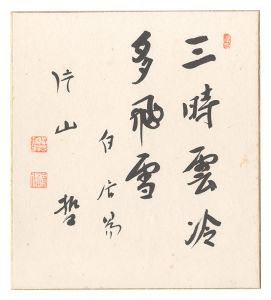 三時雲冷
多飛雪
白居易
片山哲